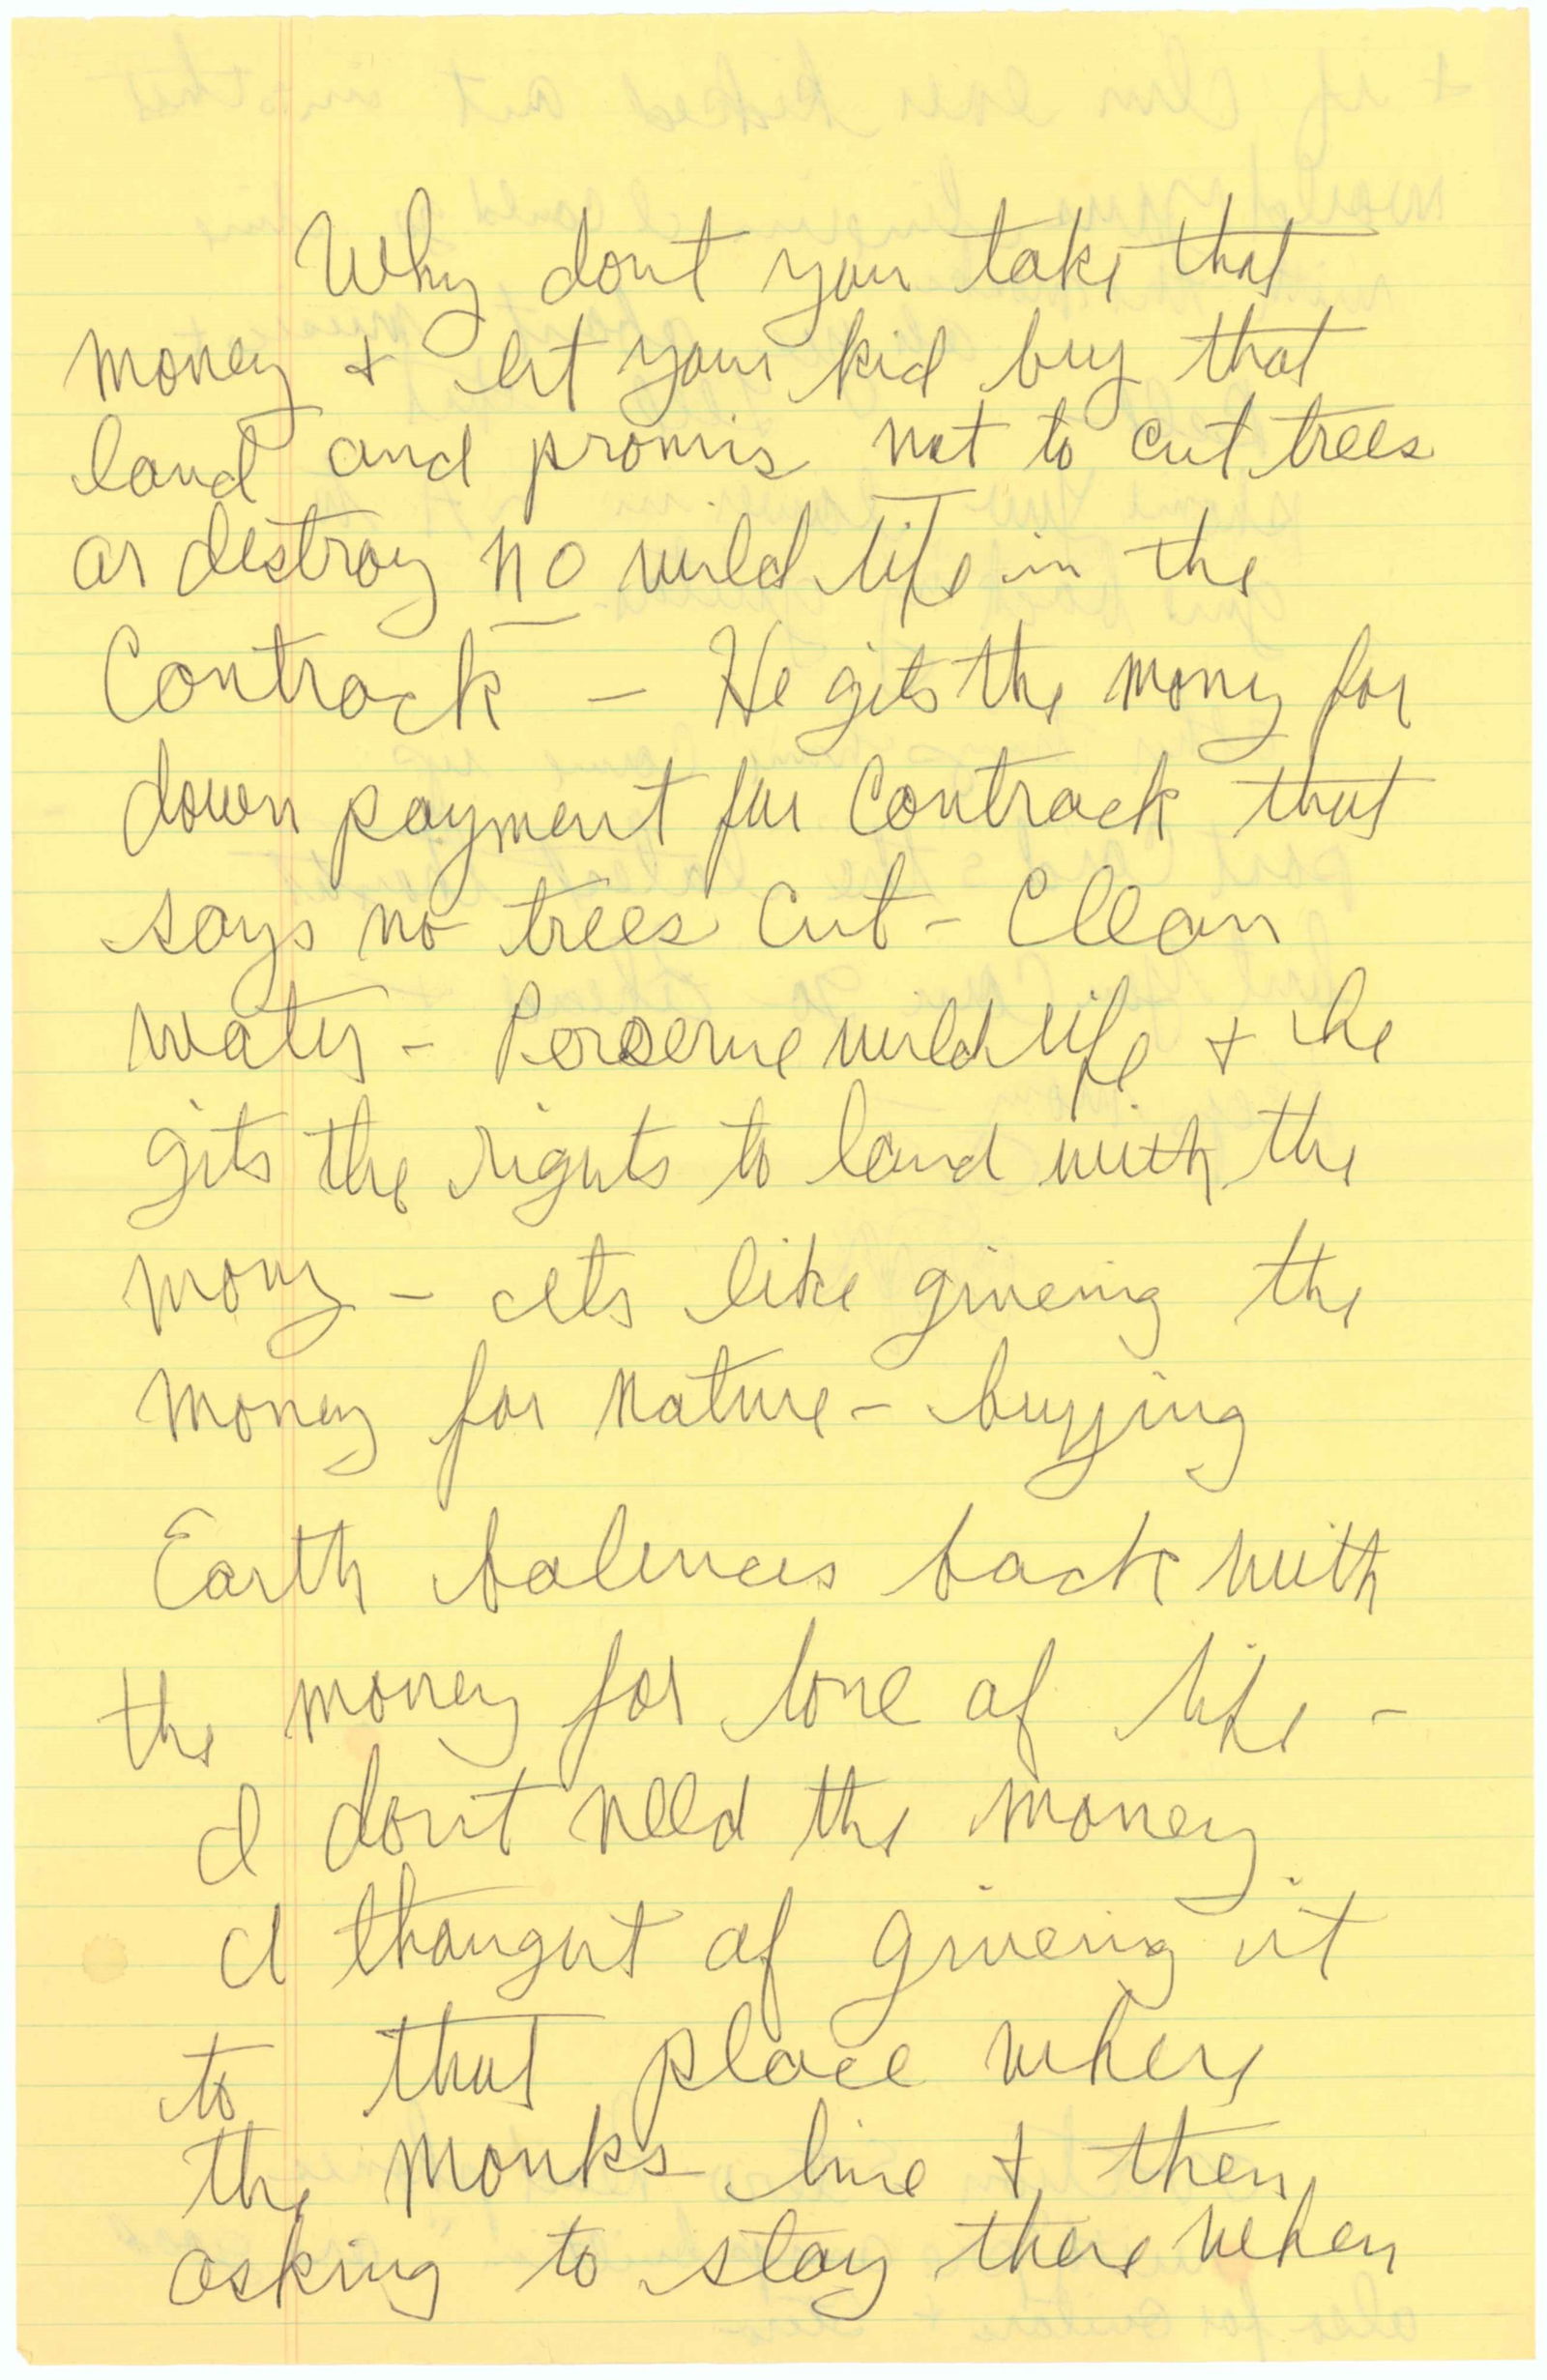 Why dont you take that
money + let your kid buy that
land and promis not to cut trees
or destroy no wild life in the
Contrack - He gits the mony for
down payment for Contrack that
says no trees cut - Clean
water - Perserve wild life + he
gits the rights to land with the
mony - Its like giveing the
money for nature - buying
Earth balences back with
the money for love of life -
I dont need the money.
I thought of giveing it
to that place where
the monks live + then
asking to stay there when